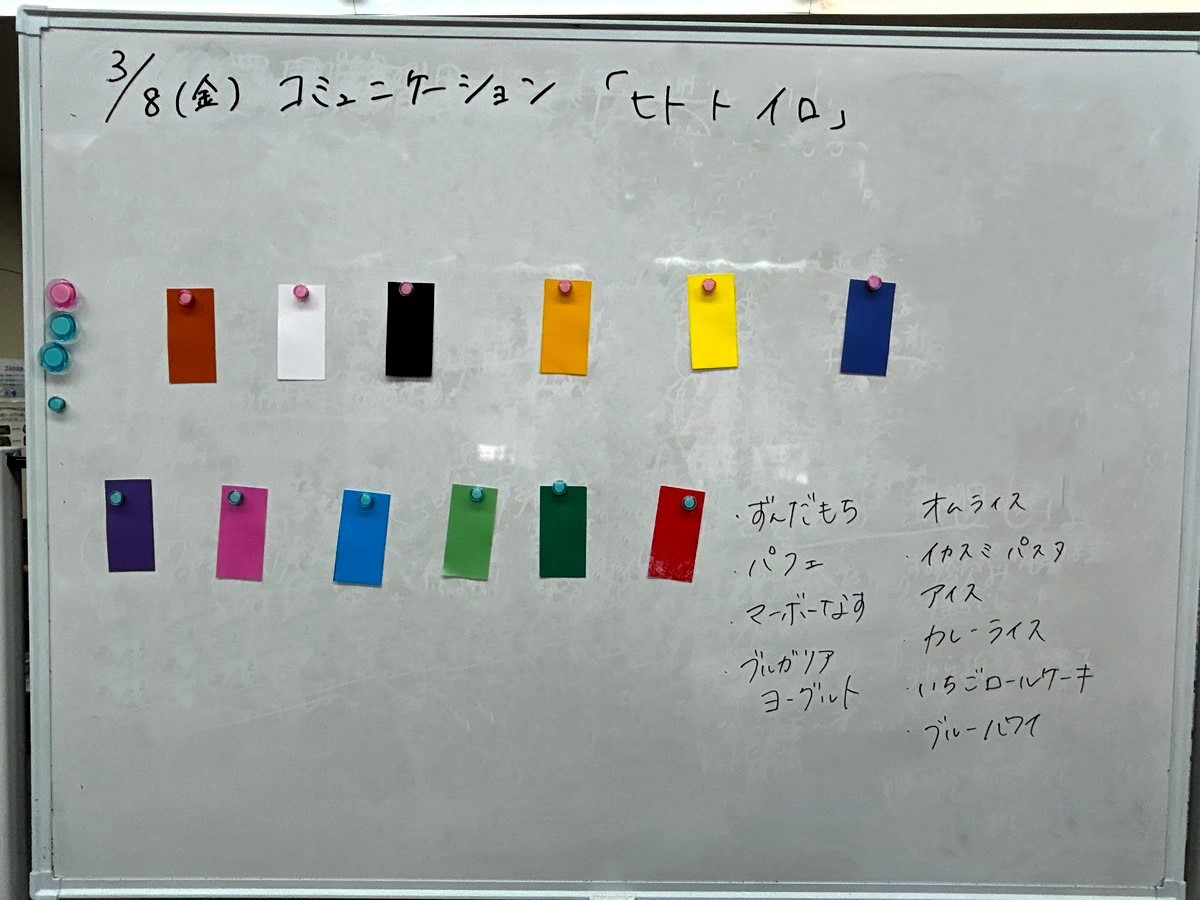 3/8(金) コミュニケーション 「ヒトトイロ」
・ずんだもち
・パフェ
・マーボーなす
・ブルガリア
ヨーグルト
オムライス
・イカスミパスタ
アイス
・カレーライス
・いちごロールケーキ
・ブルーハワイ